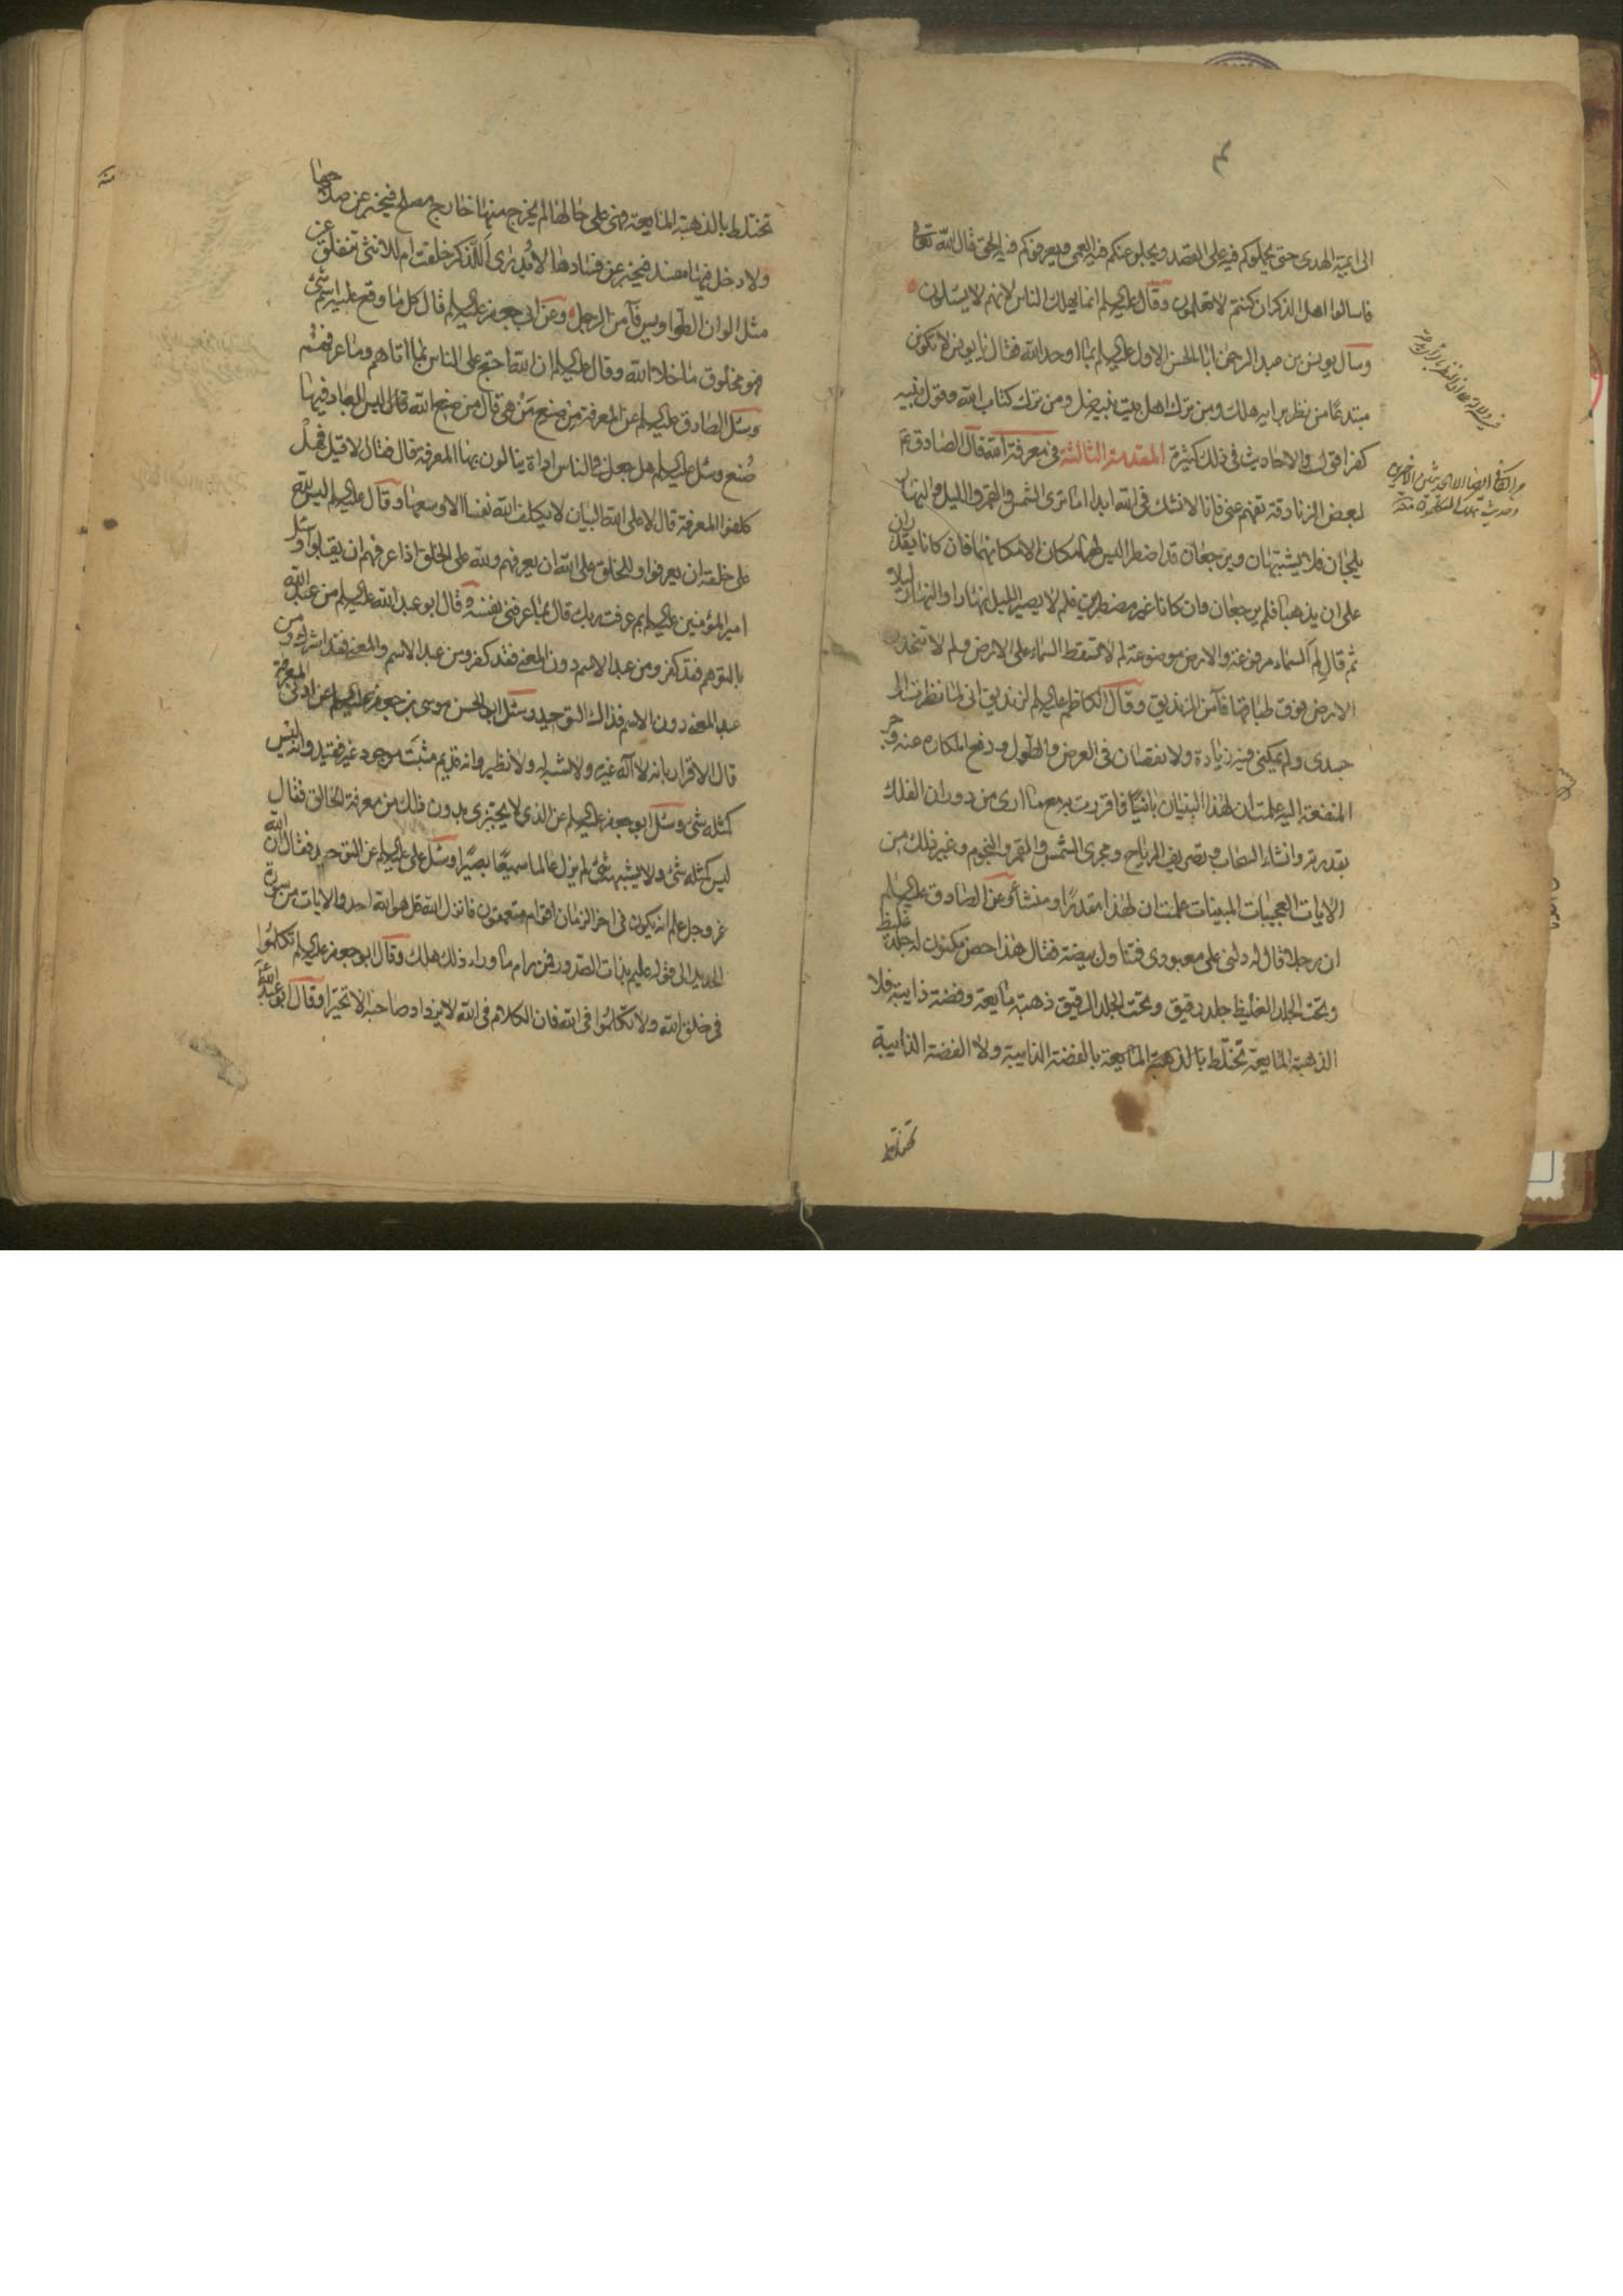 الى ايمة الهدى حتى يحملوكم فيه على القصد ويجلو عنكم فيه العمى ويعرفوكم فيه الحق قال الله تعالى
فاسالوا اهل الذكر ان كنتم لا تعلمون وقال عليه السلم انما يهلك الناس لانهم لا يسئلون
وسال يونس بن عبد الرحمن ابا الحسن الاول عليه السلم بما اوحد الله فقال يا يونس لا تكونن
مبتدعا من نظر برايه هلك ومن ترك اهل بيت نبيه ضل ومن ترك كتاب الله وقول نبيه
كفر اقول والاحاديث في ذلك كثيرة المقدمة الثالثة في معرفة الله قال الصادق ع
لبعض الزنادقة تفهم عني فانا لا نشك في الله ابدا اما ترى الشمس والقمر والليل والنهار
يلجان فلا يشتبهان ويرجعان قد اضطرا ليس لهما مكان الا مكانهما فان كانا يقدران
على ان يذهبا فلم يرجعان وان كانا غير مضطرين فلم لا يصير الليل نهارا والنهار ليلا
ثم قال لم السماء مرفوعة والارض موضوعة لم لا تسقط السماء على الارض ولم لا تنحدر
الارض فوق طباقها فآمن الزنديق وقال الكاظم عليه السلم لزنديق اني لما نظرت الى
جسدى ولم يمكنى فيه زيادة ولا نقصان في العرض والطول ودفع المكاره عنه وجر
المنفعة اليه علمت ان لهذا البنيان بانيا فاقررت به مع ما ارى من دوران الفلك
بقدرته وانشاء السحاب وتصريف الرياح ومجرى الشمس والقمر والنجوم وغير ذلك من
الايات العجيبات المبينات علمت ان لهذا مقدرا ومنشأ وعن الصادق عليه السلم
ان رجلا قال له دلنى على معبودى فتناول بيضة فقال هذا حصن مكنون له جلد غليظ
وتحت الجلد الغليظ جلد رقيق وتحت الجلد الرقيق ذهبة مايعة وفضة ذايبة فلا
الذهبة المايعة تختلط بالفضة الذايبة ولا الفضة الذايبة
تختلط
تختلط بالذهبة المايعة فهى على حالها لم يخرج منها خارج مصلح فيخبر عن صلاحها
ولا دخل فيها مفسد فيخبر عن فسادها لا يدرى اللذكر خلقت ام للانثى تنفلق عن
مثل الوان الطواويس فآمن الرجل وعن ابى جعفر عليه السلم قال كل ما وقع عليه اسم شئ
فهو مخلوق ما خلا الله وقال عليه السلم ان الله احتج على الناس بما اتاهم وما عرفهم
وسئل الصادق عليه السلم عن المعرفة من صنع من هى قال من صنع الله قال ليس للعباد فيها
صنع وسئل عليه السلم هل جعل في الناس اداة ينالون بها المعرفة قال فقال لا قيل فهل
كلفوا المعرفة قال لا على الله البيان لا يكلف الله نفسا الا وسعها وقال عليه السلم ليس لله
على خلقه ان يعرفوا وللخلق على الله ان يعرفهم ولله على الخلق اذا عرفهم ان يقبلوا وسئل
امير المؤمنين عليه السلم بم عرفت ربك قال بما عرفنى نفسه وقال ابو عبد الله عليه السلم من عبد الله
بالتوهم فقد كفر ومن عبد الاسم دون المعنى فقد كفر ومن عبد الاسم والمعنى فقد اشرك ومن
عبد المعنى دون الاسم فذاك التوحيد وسئل ابو الحسن موسى بن جعفر عليه السلم عن ادنى المعرفة
قال الاقرار بانه لا اله غيره ولا شبه له ولا نظير وانه قديم مثبت موجود غير فقيد وانه ليس
كمثله شئ وسئل ابو جعفر عليه السلم عن الذى لا يجتزى بدون ذلك من معرفة الخالق فقال
ليس كمثله شئ ولا يشبهه شئ لم يزل عالما سميعا بصيرا وسئل على عليه السلم عن التوحيد فقال ان الله
عز وجل علم انه يكون فى اخر الزمان اقوام متعمقون فانزل الله قل هو الله احد والايات من سورة
الحديد الى قوله عليم بذات الصدور فمن رام ما وراء ذلك هلك وقال ابو جعفر عليه السلم تكلموا
فى خلق الله ولا تكلموا فى الله فان الكلام فى الله لا يزداد صاحبه الا تحيرا وقال ابو عبد الله